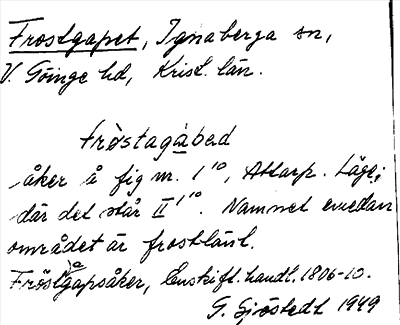 Frostgapet, Ignaberga sn,
V. Göinge hd, Krist. län.
fròstagábed
åker å fig nr. 1¹⁰, Attarp. Läge:
där det står II¹¹⁰. Namnet emedan
området är frostlänt.
Fröstgapsåker, Enskift. handl. 1806-10.
G. Sjöstedt 1949